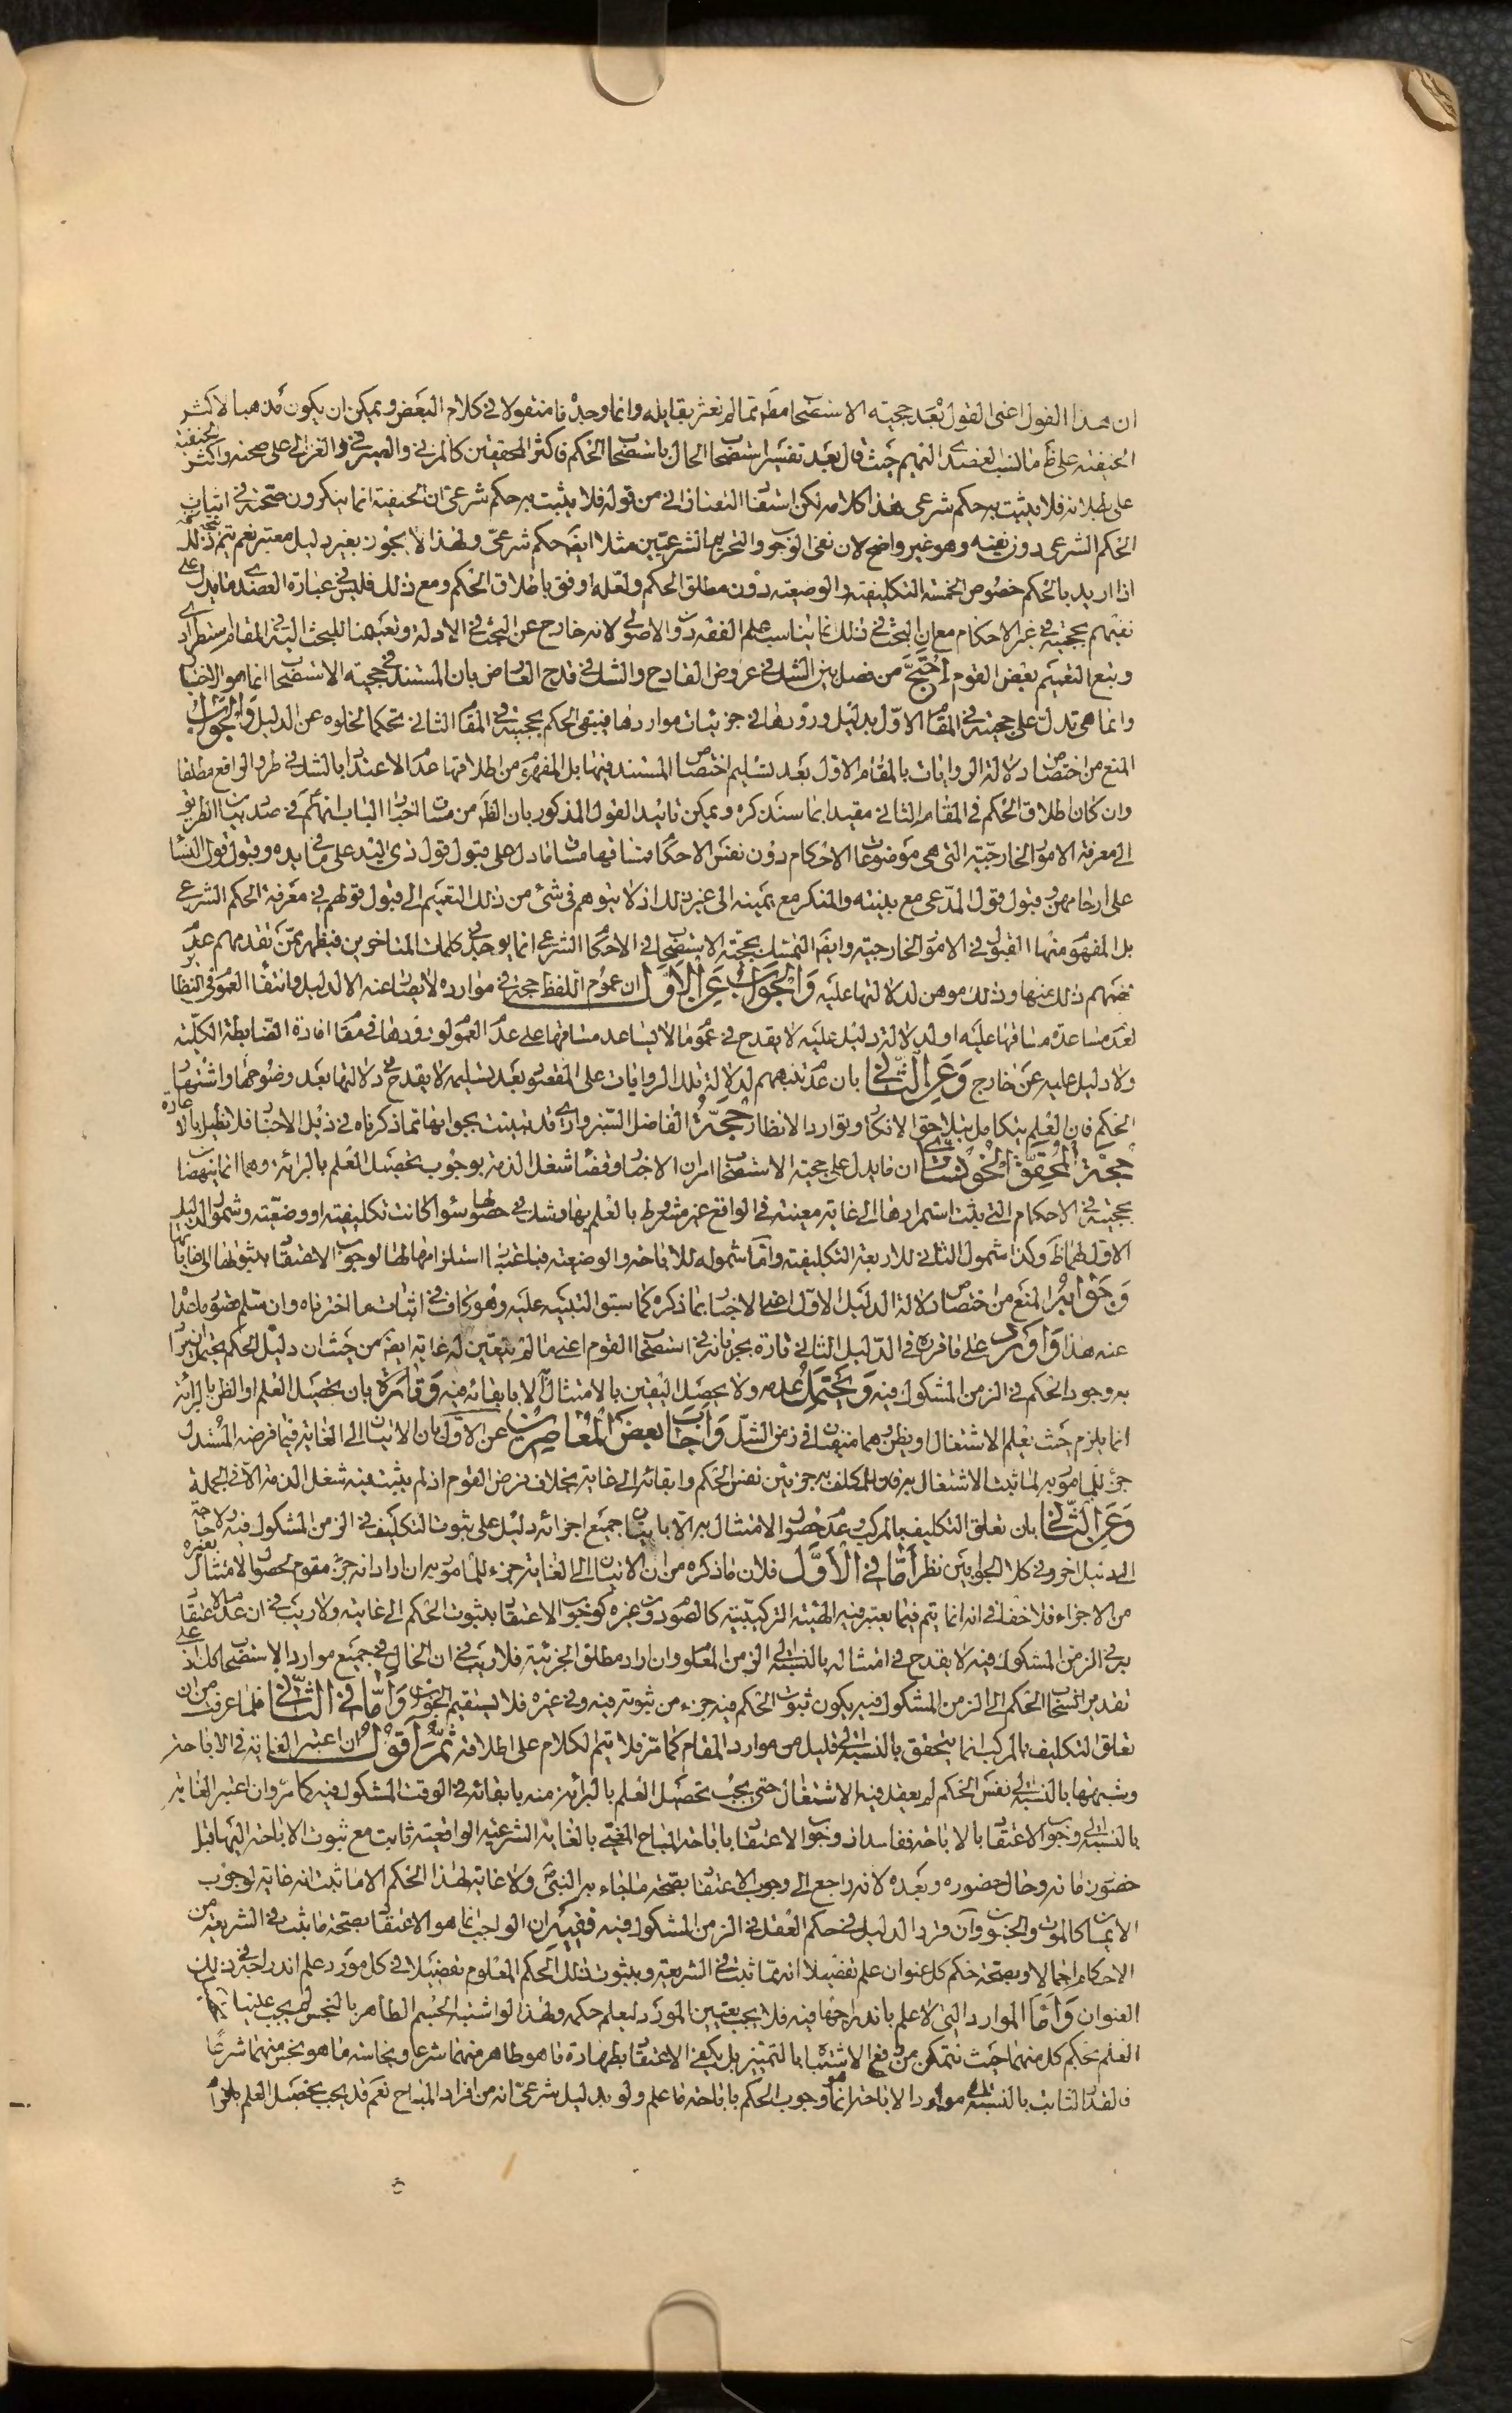 ان هذا القول اعنى القول بعد حجيته الاستصحاب مطم مما لم نعثر بقايله وانما وجدناه منقولا في كلام البعض ويمكن ان يكون مذهبا لاكثر
الحنفيته على ظ ما النسب العضدى اليهم حيث قال بعد تفسير استصحاب الحال باستصحاب الحكم فاكثر المحققين كالمزنى والصيرفى والغزالى على صحته واكثر الحنفية
على بطلانه فلا يثبت به حكم شرعى هذا كلامه لكن استفاد التفتازانى من قوله فلا يثبت به حكم شرعى ان الحنفية انما ينكرون صحته في اثبات
الحكم الشرعى دون نفيه وهو غير واضح لان نفى الوجوب والتحريم الشرعيين مثلا ايضا حكم شرعى ولهذا لا يجوز بغير دليل معتبر نعم يتم ذلك
اذا اريد بالحكم خصوص الخمسة التكليفيته والوضعيته دون مطلق الحكم ولعله اوفق باطلاق الحكم ومع ذلك فليس في عبارة العضدى ما يدل على
نفيهم بحجيته في غير الاحكام مع ان البحث في ذلك مما يناسب علم الفقه دون الاصول لانه خارج عن البحث في الادلة وتعيمنا للبحث اليه في المقام استطرادى
وتبع التعميم بعض القوم احتج من فصل بين الشك في عروض القادح والشك في قدح العارض بان المستند في حجيته الاستصحاب انما هو الاخبار
وانما هى تدل على حجيته في المقام الاول بدليل ورودها في جزئيات مواردها فيبقى الحكم بحجيته في المقام الثانى تحكما لخلوه عن الدليل والجواب
المنع من اختصاص دلالة الروايات بالمقام الاول بعد تسليم اختصاص المستند فيها بل المفهوم من اطلاقها عدم الاعتداد بالشك في طرو الواقع مطلقا
وان كان اطلاق الحكم في المقام الثانى مقيدا بما سنذكره ويمكن تائيد القول المذكور بان الظ من مساق اخبار الباب انهم في صدد بيان الطريق
الى معرفة الامور الخارجيته التى هى موضوعات الاحكام دون نفس الاحكام فمساقها مساق ما دل على قبول قول ذى اليد على ما في يده وقبول قول النساء
على ارحامهن وقبول قول المدعى مع بينته والمنكر مع يمينه الى غير ذلك اذ لا يتوهم في شئ من ذلك التعميم الى قبول قولهم في معرفة الحكم الشرعى
بل المفهوم منها القبول في الامور الخارجيه وايضا التمسك بحجيته الاستصحاب في الاحكام الشرعى انما يوجد في كلمات المتاخرين فيظهر ممن تقدمهم عدم
فهمهم ذلك منها وذلك موهن لدلالتها عليه والجواب عن الاول ان عموم اللفظ حجة في موارده لا يصار عنه الا لدليل وانتفاء العموم في النظائر
لعدم مساعدة مساقها عليه او لدلالة دليل عليه لا يقدح في عموم ما لا يساعد مساقها على عدم العموم لورودها في مقام افادة الضابطة الكلية
ولا دليل عليه عن خارج وعن الثانى بان عدم تنبههم لدلالة تلك الروايات على المقصود بعد تسليمه لا يقدح في دلالتها بعد وضوحها واشتهار
الحكم فان العلم يتكامل بتلاحق الافكار وتوارد الانظار حجة الفاضل السبزوارى قد تبينت بجوابها مما ذكرناه في ذيل الاخبار فلا نطيل بالاعادة
حجة المحقق الخونسارى ان ما يدل على حجية الاستصحاب امران الاخبار وقضاء شغل الذمة بوجوب تحصيل العلم بالبرائة وهما انما ينهضا
بحجيته في الاحكام التى يثبت استمرارها الى غاية معينه في الواقع غير مشروط بالعلم بها وشك في حصولها سواء كانت تكليفيته او وضعيته وشمول الدليل
الاول لهما ظ وكذا شمول الثانى للاربعة التكليفيته واما شموله للاباحة والوضعيته فباعتبار استلزامها لوجوب الاعتقاد بثبوتها الى غاياتها
وجوابه المنع من اختصاص دلالة الدليل الاول اعنى الاخبار بما ذكره كما سبق التنبيه عليه وهو كاف في اثبات ما اخترناه وان سلم قصور ما عداه
عنه هذا واورد على ما قرره في الدليل الثانى تارة بجريانه في استصحاب القوم اعنى ما لم يتعين له غاية ايضا من حيث ان دليل الحكم يحتمل ان يراد
به وجود الحكم في الزمن المشكوك فيه ويحتمل عدمه ولا يحصل اليقين بالامتثال الا بابقائه فيه وتارة بان تحصيل العلم او الظن بالبرائة
انما يلزم حيث نعلم الاشتغال او يظن وهما منتفيان في زمن الشك واجاب بعض المعاصرين عن الاول بان الاتيان الى الغاية فيما فرضه المستدل
جزء للمامور به لما ثبت الاشتغال به فان المكلف به جزئين نفس الحكم وابقائه الى غاية بخلاف فرض القوم اذ لم يثبت فيه شغل الذمة الا في الجملة
وعن الثانى بان تعلق التكليف بالمركب وعدم حصول الامتثال به الا باتيان جميع اجزائه دليل على ثبوت التكليف في الزمن المشكوك فيه ولا حاجة
الى دليل اخر وفي كلا الجوابين نظر اما في الاول فلان ما ذكره من ان الاتيان الى الغاية جزء للمامور به ان اراد انه جزء مقوم لحصول الامتثال بغيره
من الاجزاء فلا خفاء في انه انما يتم فيما يعتبر فيه الهيئة التركيبية كالصوم دون غيره كوجوب الاعتقاد بثبوت الحكم الى غايته ولا ريب في ان عدم الاعتقاد
به في الزمن المشكوك فيه لا يقدح في امتثاله بالنسبة الى الزمن المعلوم وان اراد مطلق الجزئية فلا ريب في ان الحال في جميع موارد الاستصحاب كذلك اذ على
تقدير انسحاب الحكم الى الزمن المشكوك فيه يكون ثبوت الحكم فيه جزء من ثبوته فيه وفي غيره فلا يستقيم الفرق واما في الثانى فلما عرفت من ان
تعلق التكليف بالمركب انما يتحقق بالنسبة الى قليل من موارد المقام كما مر فلا يتم الكلام على اطلاقه ثم اقول ان اعتبر الغاية في الاباحة
وشبهها بالنسبة الى نفس الحكم لم يعقل فيه الاشتغال حتى يجب تحصيل العلم بالبرائة منه بابقائه في الوقت المشكوك فيه كما مر وان اعتبر الغاية
بالنسبة الى وجوب الاعتقاد بالاباحة ففاسد اذ وجوب الاعتقاد باباحة المباح المغيى بالغاية الشرعية الواقعيته ثابت مع ثبوت الاباحة اليها قبل
حضور زمانه وحال حضوره وبعده لانه راجع الى وجوب الاعتقاد بصحة ما جاء به النبى ص ولا غاية لهذا الحكم الا ما ثبت انه غاية لوجوب
الايمان كالموت والجنون وان قرر الدليل في حكم العقل في الزمن المشكوك فيه ففيه ان الواجب انما هو الاعتقاد بصحة ما ثبت في الشريعة من
الاحكام اجمالا وبصحة حكم كل عنوان علم تفصيلا انه مما ثبت في الشريعة وبثبوت ذلك الحكم المعلوم تفصيلا في كل مورد علم اندراجه في ذلك
العنوان واما الموارد التى لا علم باندراجها فيه فلا يجب تعيين المورد ليعلم حكمه ولهذا لو اشتبه الجسم الطاهر بالنجس لم يجب علينا
العلم بحكم كل منهما حيث نتمكن من رفع الاشتباه بالتمييز بل يكفى الاعتقاد بطهارة ما هو طاهر منهما شرعا ونجاسة ما هو نجس منهما شرعا
فالقدر الثابت بالنسبة الى موارد الاباحة انما هو وجوب الحكم باباحة ما علم ولو بدليل شرعى انه من افراد المباح نعم قد يجب تحصيل العلم